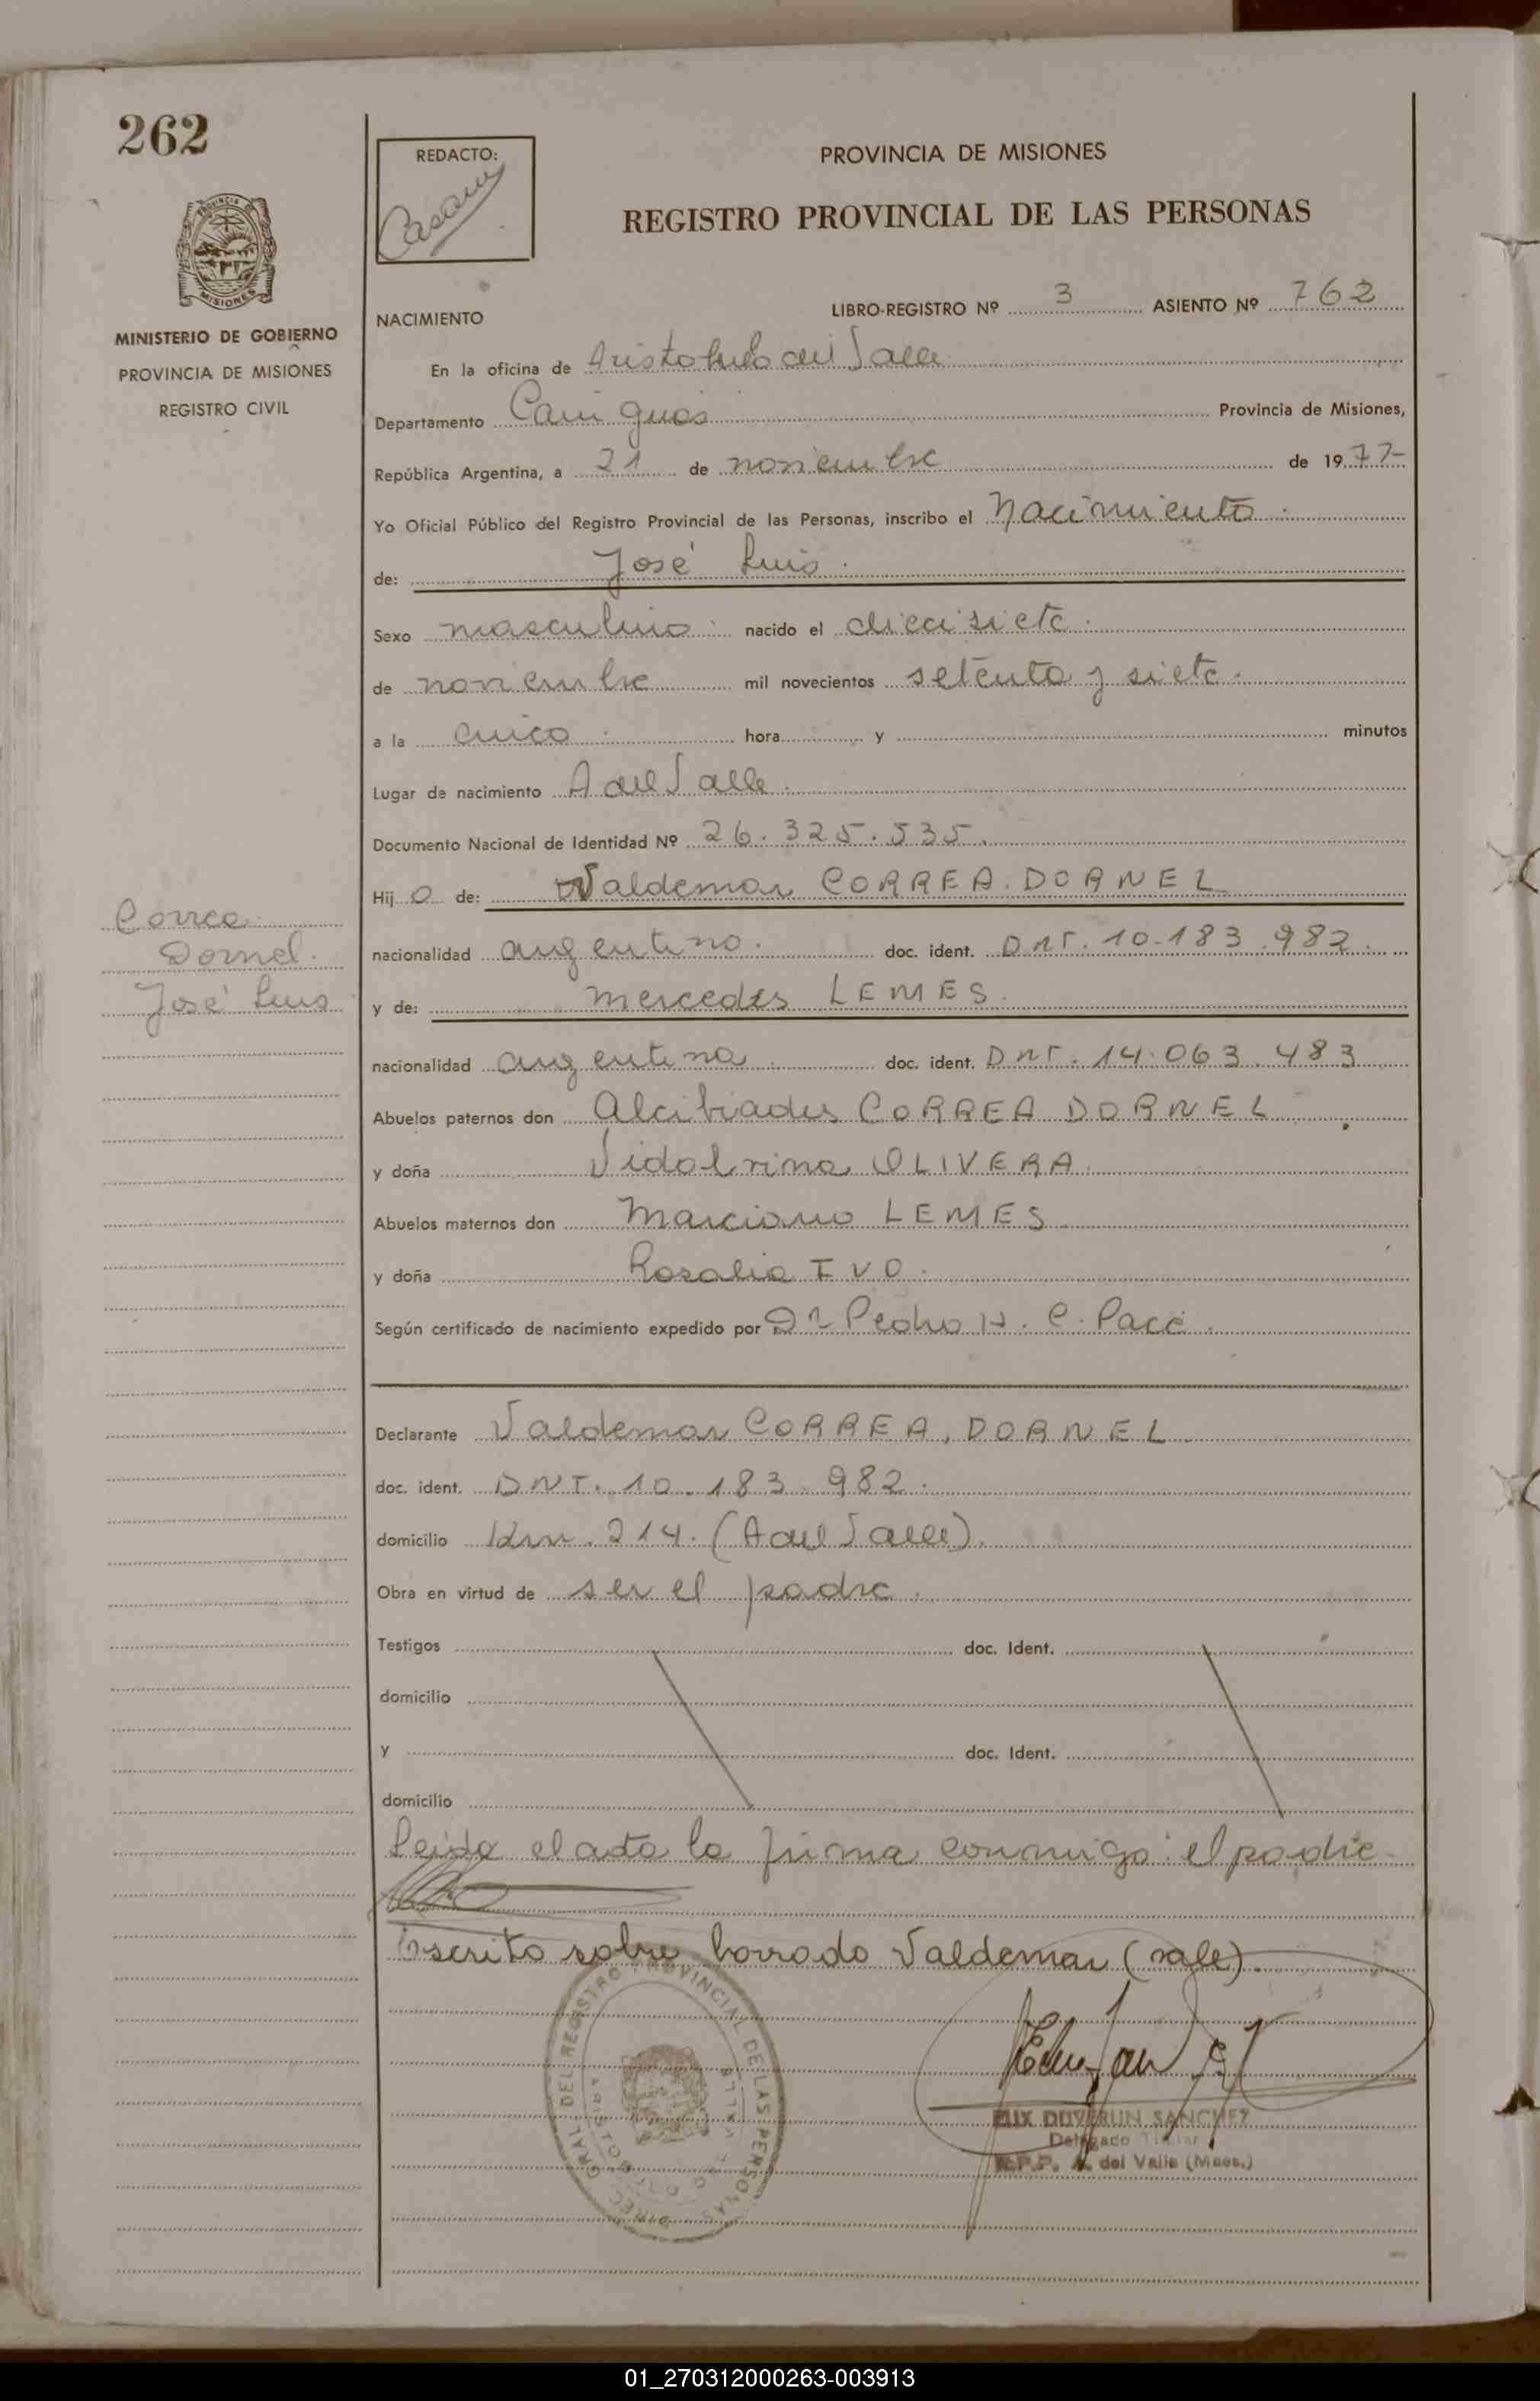 262
REDACTO:
PROVINCIA DE MISIONES
REGISTRO PROVINCIAL DE LAS PERSONAS
MISIONES
MINISTERIO DE GOBIERNO
PROVINCIA DE MISIONES
REGISTRO CIVIL
NACIMIENTO LIBRO-REGISTRO Nº 3 ASIENTO Nº 762
En la oficina de Aristobulo del Valle
Departamento Cainguás Provincia de Misiones,
República Argentina, a 21 de noviembre de 1977-
Yo Oficial Público del Registro Provincial de las Personas, inscribo el Nacimiento
de: José Luis.
Sexo masculino nacido el diecisiete.
de noviembre mil novecientos setenta y siete.
a la cinco hora y minutos
Lugar de nacimiento A del Valle.
Documento Nacional de Identidad Nº 26.325.535.
Hij o de: Valdemar CORREA. DORNEL
Correa
Dornel.
José Luis
nacionalidad argentino. doc. ident. DNI. 10.183.982.
y de: Mercedes LEMES.
nacionalidad argentina doc. ident. DNI. 14.063.483
Abuelos paternos don Alcibiades CORREA DORNEL
y doña Vidalvina OLIVERA
Abuelos maternos don Marciano LEMES.
y doña Rosalia IVO.
Según certificado de nacimiento expedido por Dr Pedro H. C. Pace.
Declarante Valdemar CORREA, DORNEL.
doc. ident. DNI. 10.183.982.
domicilio Km. 214. (A del Valle).
Obra en virtud de ser el padre.
Testigos doc. Ident.
domicilio
y doc. Ident.
domicilio
Leida el acta la firma conmigo: el padre-
Escrito sobre borrado Valdemar (vale).
DIREC. GRAL DEL REGISTRO PROVINCIAL DE LAS PERSONAS
ARISTOBULO DEL VALLE
SANCHEZ
Delegado Titular
R.P.P. A. del Valle (Mnes.)
01_270312000263-003913